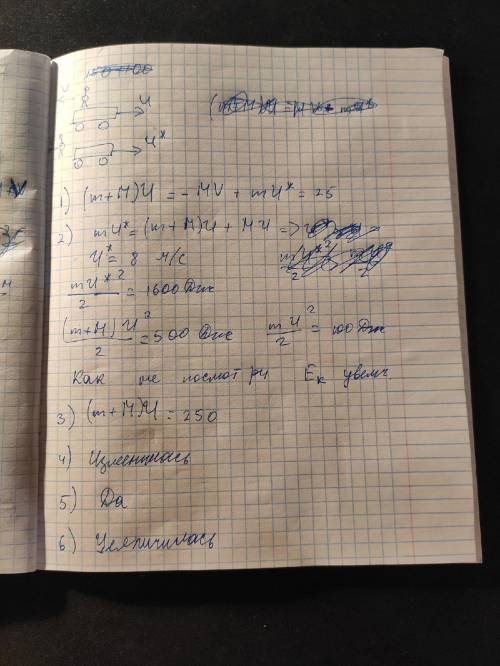 U
U*
1) (m+M)U = - MV + mU* = 25
2) mU* = (m+M)U + MU =>
U* = 8 м/с
mU*²/2 = 1600 Дж
(m+M)U²/2 = 500 Дж mU²/2 = 100 Дж
Как не посмотри Eк увелич.
3) (m+M)U = 250
4) Изменилась
5) Да
6) Увеличилась